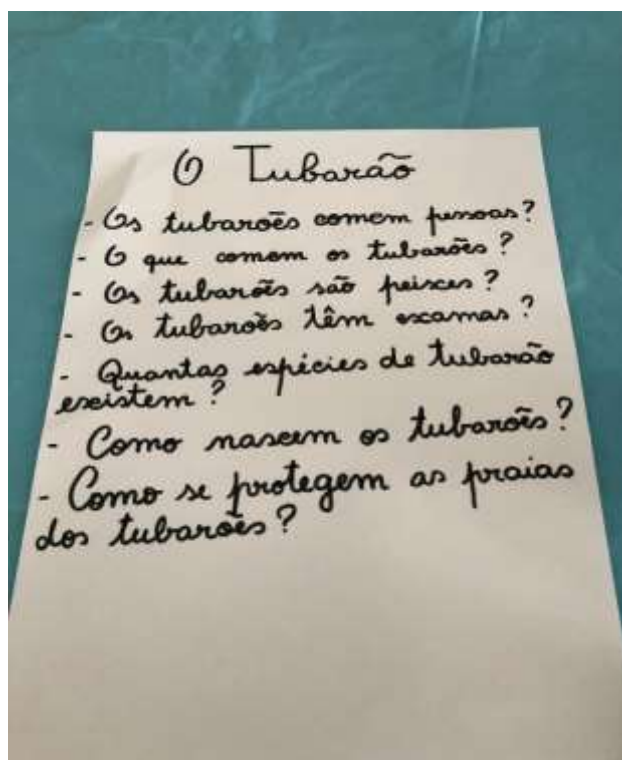 O Tubarão
- Os tubarões comem pessoas?
- O que comem os tubarões?
- Os tubarões são peixes?
- Os tubarões têm escamas?
- Quantas espécies de tubarão
existem?
- Como nascem os tubarões?
- Como se protegem as praias
dos tubarões?